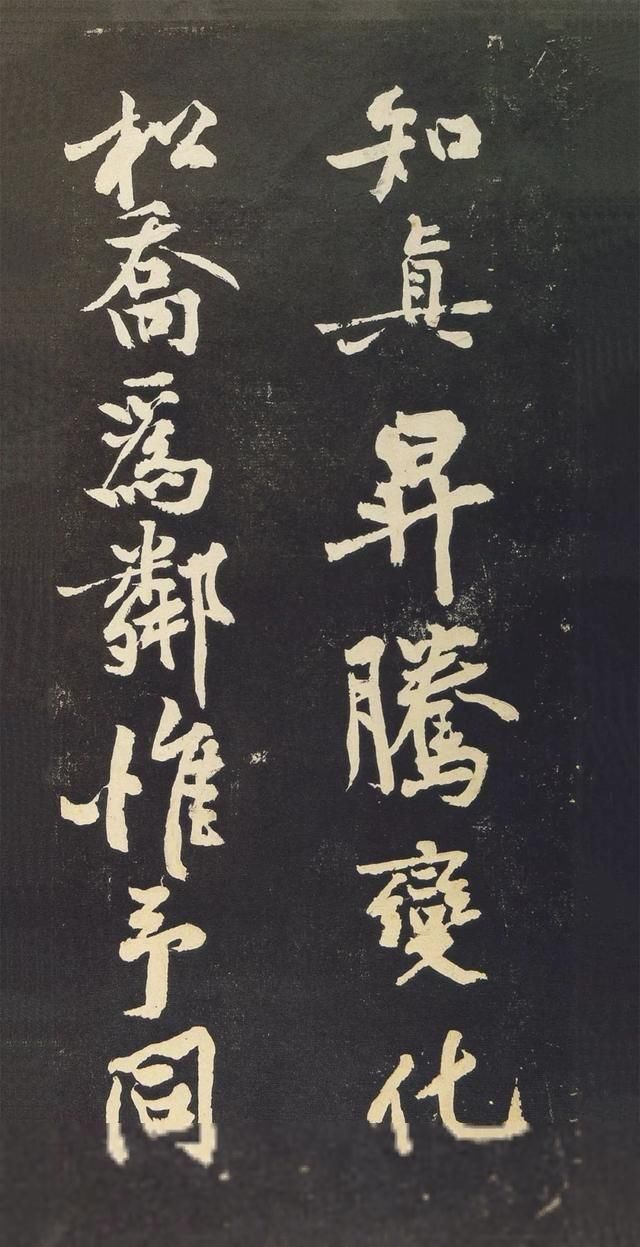 知真昇騰變化
松喬為鄰惟予同